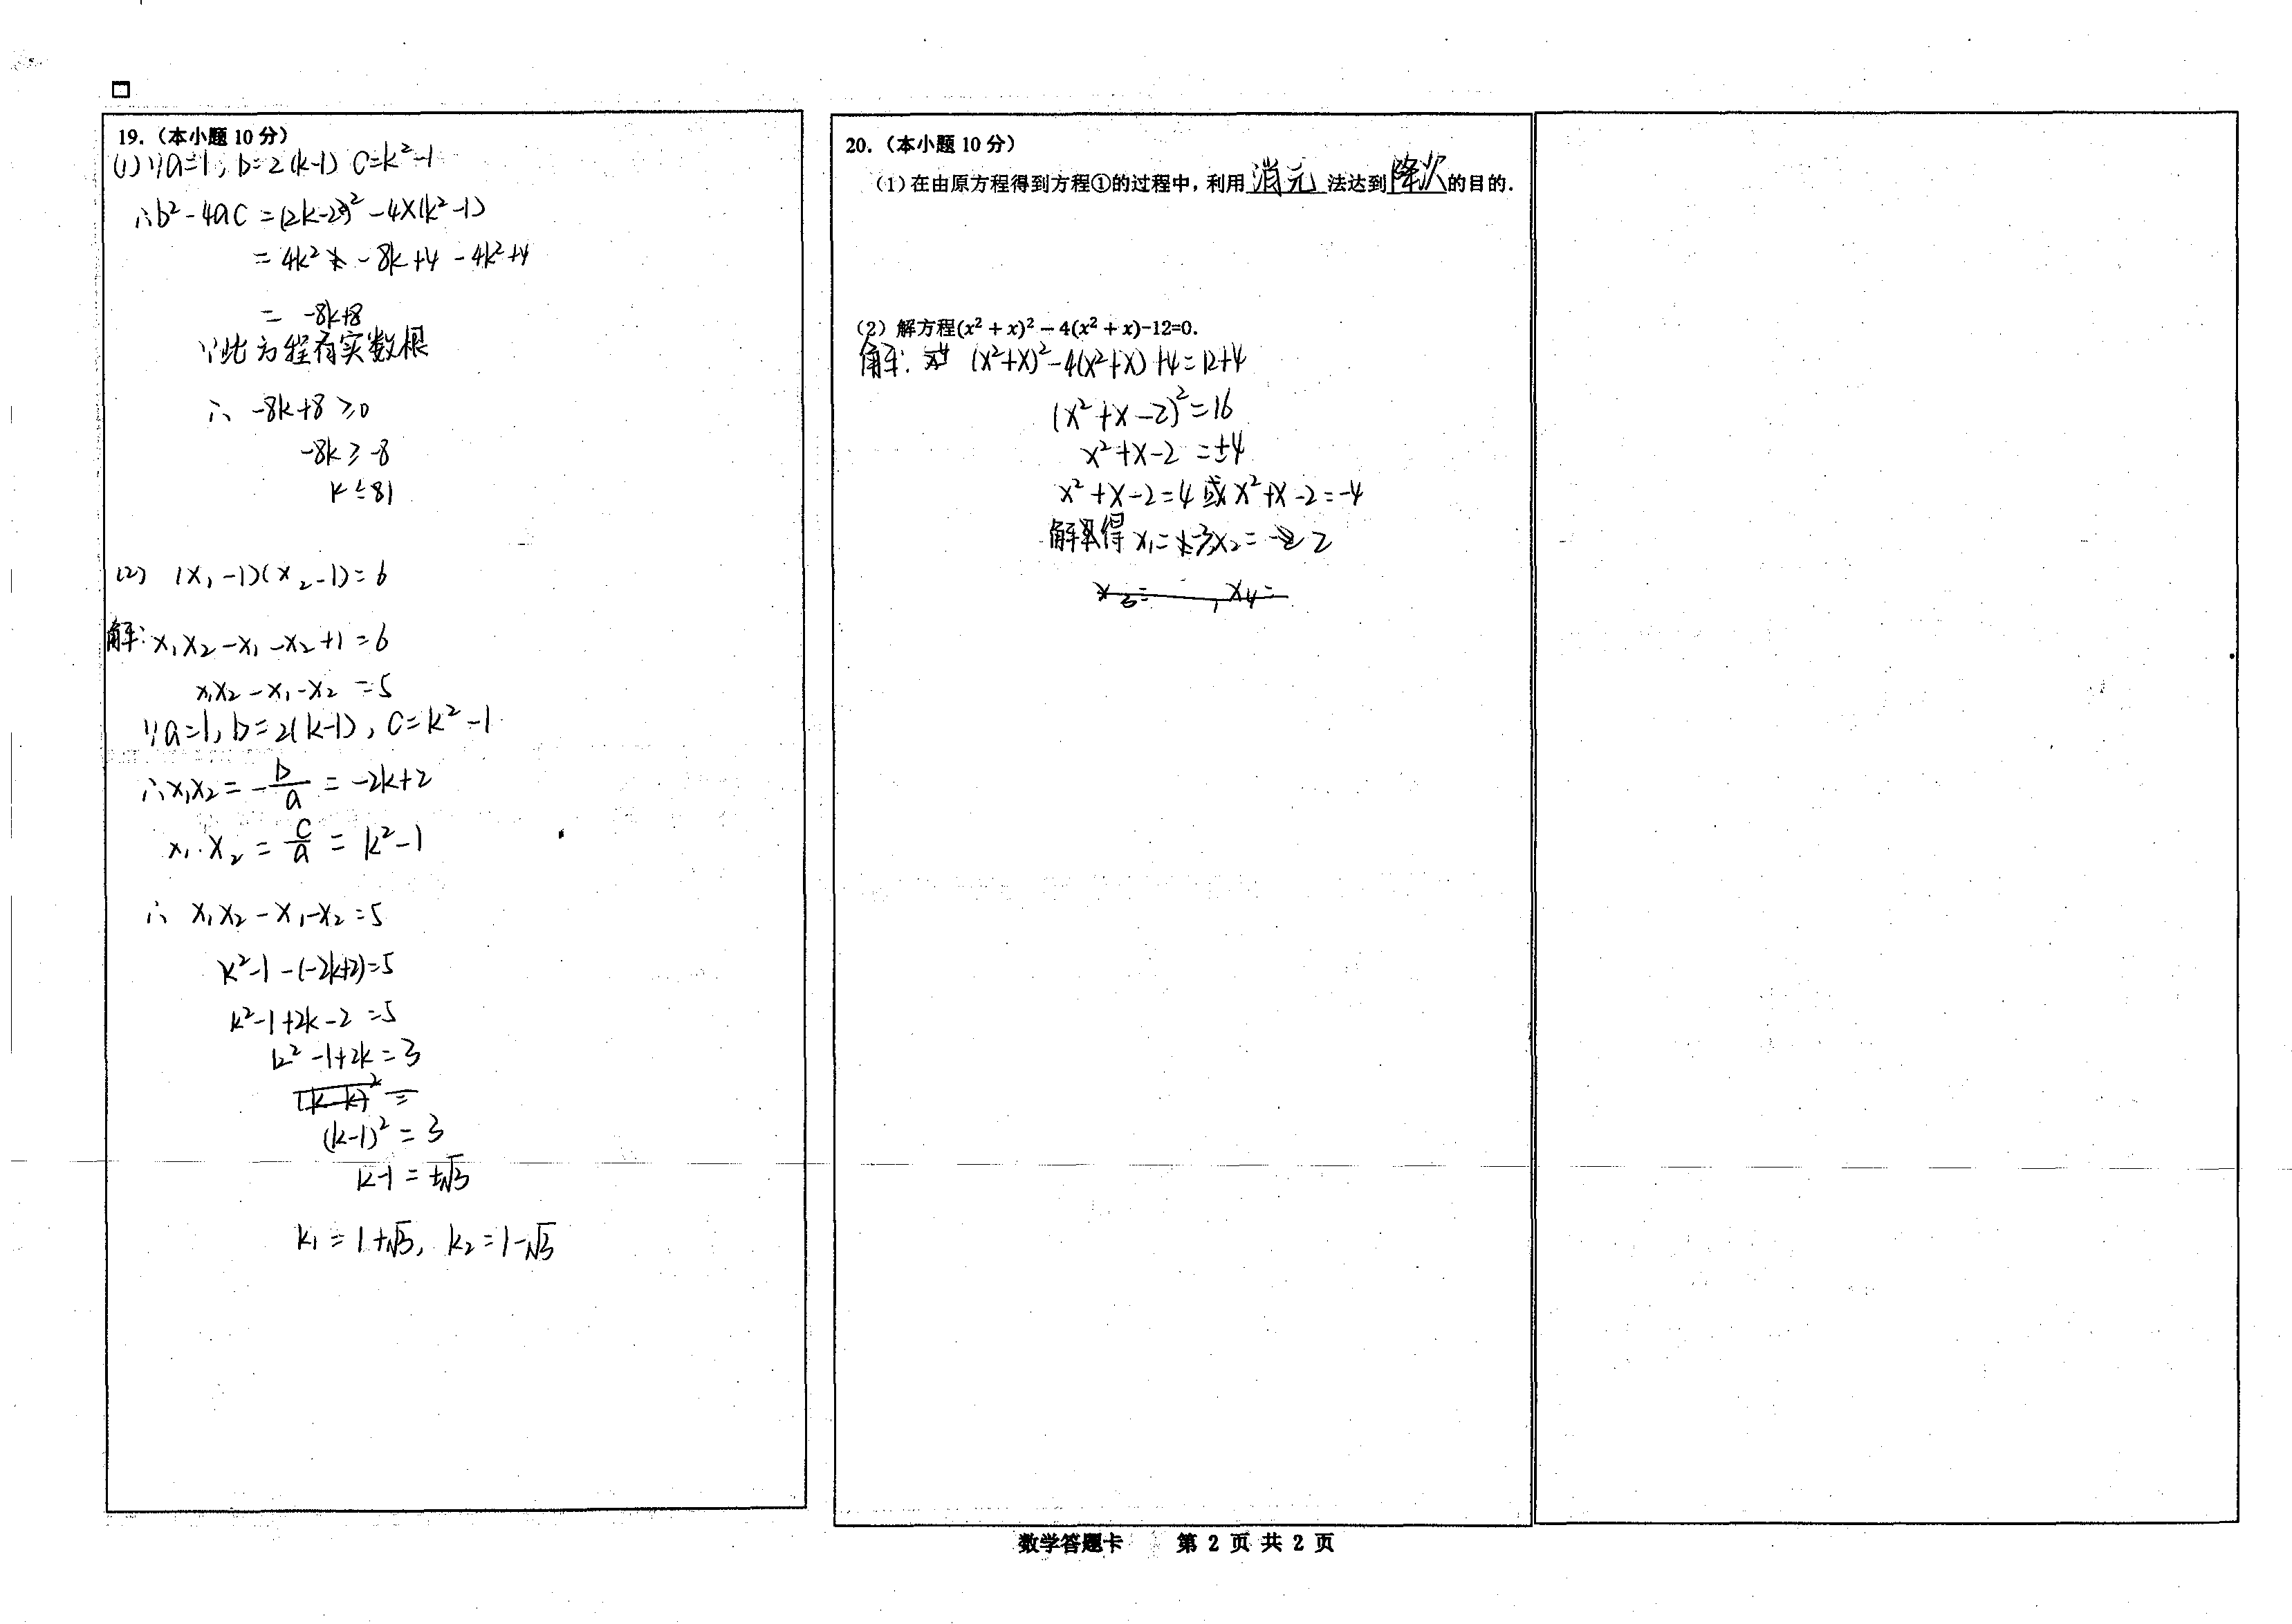 19.（本小题 10 分）
(1) ∵a=1, b=2(k-1) c=k²-1
∴b²-4ac=(2k-2)²-4×(k²-1)
=4k²-8k+4-4k²+4
= -8k+8
∵此方程有实数根
∴ -8k+8≥0
-8k≥-8
k≤1
(2) (x₁-1)(x₂-1)=6
解: x₁x₂-x₁-x₂+1=6
x₁x₂-x₁-x₂=5
∵a=1, b=2(k-1), c=k²-1
∴x₁x₂=-b/a=-2k+2
x₁·x₂=c/a=k²-1
∴ x₁x₂-x₁-x₂=5
k²-1-(-2k+2)=5
k²-1+2k-2=5
k²-1+2k=3
(k-1)²=3
k-1=±√3
k₁=1+√3, k₂=1-√3
20.（本小题 10 分）
（1）在由原方程得到方程①的过程中，利用消元法达到降次的目的.
（2）解方程(x²+x)²-4(x²+x)-12=0.
解: (x²+x)²-4(x²+x)+4=12+4
(x²+x-2)²=16
x²+x-2=±4
x²+x-2=4或x²+x-2=-4
解得 x₁=-3 x₂=2
x₃= , x₄=
数学答题卡 第 2 页 共 2 页